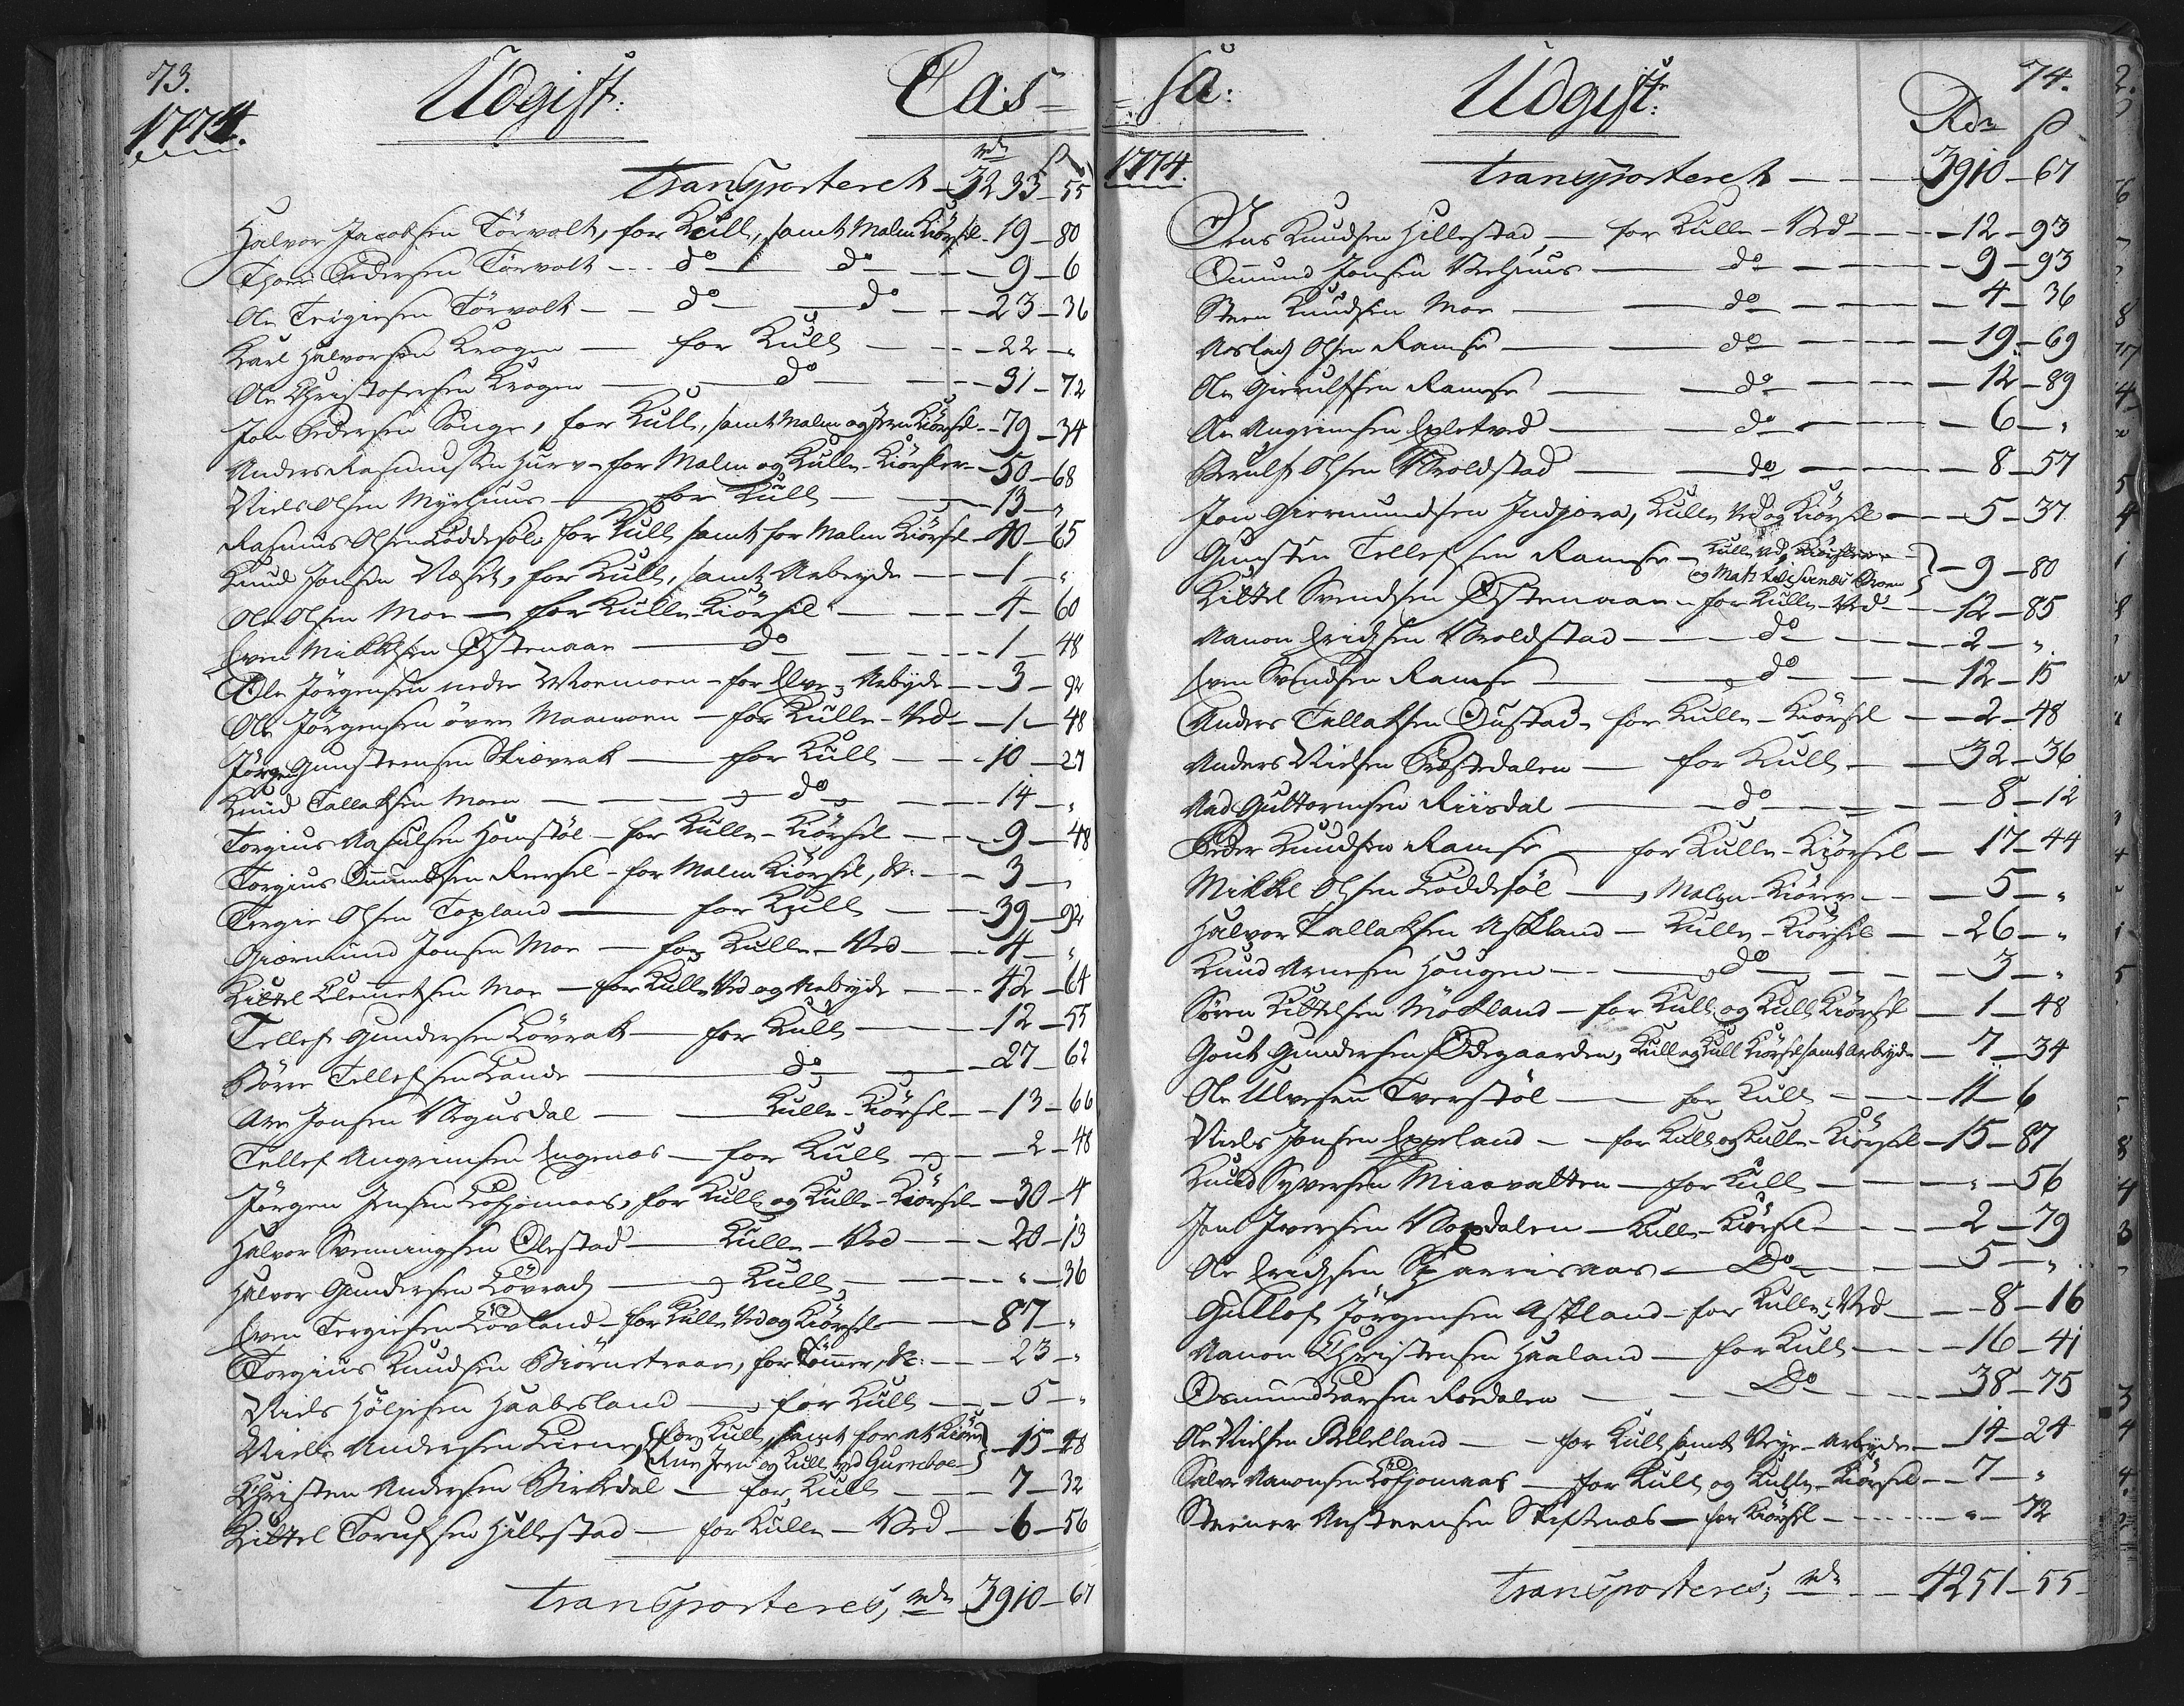 73.
1774.
Udgift:
Cas=
rdr ß
Transporteret – 3233 – 55
Halvor Jacobsen Törvolt, for Kull, samt Malm Kiörsel – 19 – 80
Thore Pedersen Törvolt – do – do – 9 – 6
Ole Tergiesen Törvolt – do – do – 23 – 36
Karl Halvorsen Krogen – for Kull – 22 – "
Ole Christophersen Krogen – do – 31 – 72
Jon Pedersen Songe, for Kull, samt Malm og Jern Kiörsel – 79 – 34
Anders Rasmussen Hurv – for Malm og Kulle-Kiörsler – 50 – 68
Niels Olsen Myrhuus – for Kull – 13 – "
Rasmus Olsen Loddesöl – for Kull samt for Malm Kiörsel – 40 – 65
Knud Jonsen Næset, for Kull, samt Arbeyde – 1 – "
Ole Olsen Moe – for Kulle-Kiörsel – 4 – 60
Even Mikkelsen Østenaae – do – 1 – 48
Ole Jörgensen nedre Moemoen – for Elve-Arbeyde – 3 – 92
Ole Jörgensen övre Maamoen – for Kulle-Ved – 1 – 48
Jörgen Gunsteensen Skiævrak – for Kull – 10 – 27
Knud Tallaksen Moen – do – 14 – "
Torgius Aasulsen Homstöl – for Kulle-Kiörsel – 9 – 48
Torgius Omundsen Reersel – for Malm Kiörsel, &c: – 3 – "
Tergie Olsen Topland – for Kull – 39 – 92
Giermund Jonsen Moe – for Kulle-Ved – 4 – "
Kittel Clemmetsen Moe – for Kulle Ved og Arbeyde – 42 – 64
Tellef Gundersen Lövrak – for Kull – 12 – 55
Börre Tellefsen Lande – do – 27 – 62
Are Jonsen Vegusdal – Kulle-Kiörsel – 13 – 66
Tellef Angrimsen Engenæs – for Kull – 2 – 48
Jörgen Jensen Lofsjomaas, for Kull og Kulle-Kiörsel – 30 – 4
Halvor Svenningsen Olestad – Kulle-Ved – 20 – 13
Halvor Gundersen Lövrach – Kull – " – 36
Even Tergiesen Lövland – for Kulle Ved og Kiörsel – 87 – "
Torgius Knudsen Biörnetraae, for Tömmer, &c: – 23 – "
Niels Höljesen Haabesland – for Kull – 5 – "
Niels Andersen Liene, for Kull, samt for at Kiöre
Rue Jern og Kull ved Gurreboe – 15 – 28
Christen Andersen Birkedal – for Kull – 7 – 32
Kittel Torufsen Hillestad – for Kulle-Ved – 6 – 56
Transporteres, rdr 3910 – 67
=sa:
Udgift:
74.
1774.
Rdr ß
Transporteret – 3910 – 67
Jens Knudsen Hillestad – for Kulle-Ved – 12 – 93
Omund Jonsen Veehuus – do – 9 – 93
Steen Knudsen Moe – do – 4 – 36
Aaslach Olsen Ramse – do – 19 – 69
Ole Gierulfsen Ramse – do – 12 – 89
Ole Angrimsen Epletved – do – 6 – "
Gierulf Olsen Vroldstad – do – 8 – 57
Jon Giermundsen Indjora, Kulle Ved og Kiörsel – 5 – 37
Gunsten Tellefsen Ramse – Kulle Ved, Kiörsler
og Mats – 9 – 80
Kittel Svendsen Østenaae – for Kulle-Ved – 12 – 85
Aanon Erichsen Vroldstad – do – 2 – "
Even Svendsen Ramse – do – 12 – 15
Anders Tallaksen Oustad – for Kulle-Kiörsel – 2 – 48
Anders Nielsen Präestedalen – for Kull – 32 – 36
Aad Guttormsen Riisdal – do – 8 – 12
Peder Knudsen Ramse – for Kulle-Kiörsel – 17 – 44
Mikkel Olsen Loddesöl – Malm-Kiören – 5 – "
Halvor Tallaksen Askland – Kulle-Kiörsel – 26 – "
Knud Arnesen Haugen – do – 3 – "
Sören Kittelsen Mökland – for Kull og Kull Kiörsel – 1 – 48
Gout Gundersen Ödegaarden, Kull og Kull Kiörsel samt Arbeyde – 7 – 34
Ole Ulvesen Tverstöl – for Kull – 11 – 6
Niels Jonsen Eppeland – for Kull og Kulle-Kiörsel – 15 – 87
Knud Syversen Miaavatten – for Kull – " – 56
Jens Iversen Vapdalen – Kulle-Kiörsel – 2 – 79
Ole Erichsen Sparrisaas – Do – 5 – "
Gullof Jörgensen Askland – for Kulle-Ved – 8 – 16
Aanon Christensen Haaland – for Kull – 16 – 41
Osmund Larsen Roedalen – Do – 38 – 75
Ole Nielsen Bellelland – for Kull samt Veye-Arbeyde – 14 – 24
Salve Aanonsen Lofsjomaas – for Kull og Kulle-Kiörsel – 7 – "
Steener Austeensen Skiftenæs – for Kiörsel – " – 72
Transporteres, rdr – 4251 – 55